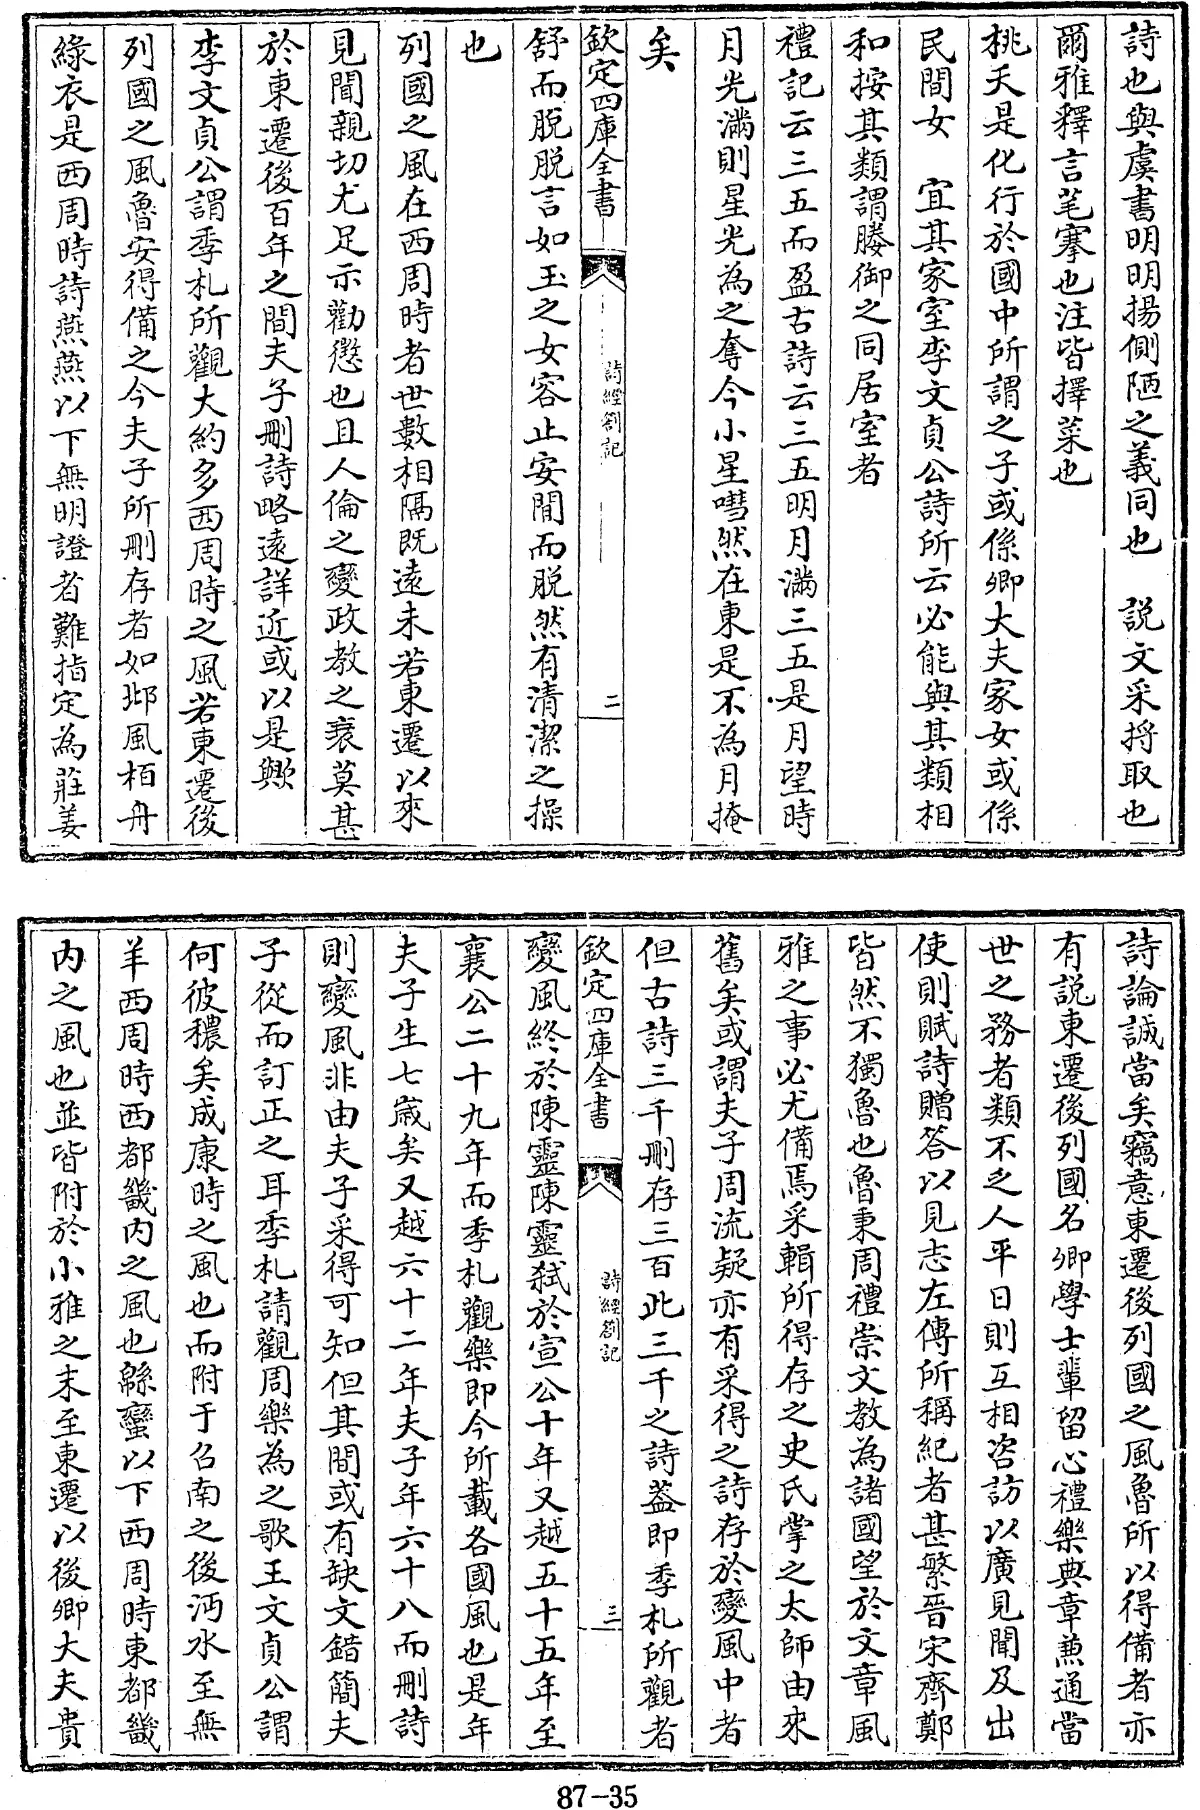 詩也與虞書明明揚側陋之義同也　說文采捋取也
爾雅釋言芼搴也注皆擇菜也
桃夭是化行於國中所謂之子或係卿大夫家女或係
民間女　宜其家室李文貞公詩所云必能與其類相
和按其類謂媵御之同居室者
禮記云三五而盈古詩云三五明月滿三五是月望時
月光滿則星光為之奪今小星嘒然在東是不為月掩
矣
欽定四庫全書
詩經劄記
二
舒而脫脫言如玉之女容止安閒而脫然有清潔之操
也
列國之風在西周時者世數相隔既遠未若東遷以來
見聞親切尤足示勸懲也且人倫之變政教之衰莫甚
於東遷後百年之間夫子刪詩略遠詳近或以是歟
李文貞公謂季札所觀大約多西周時之風若東遷後
列國之風魯安得備之今夫子所刪存者如邶風柏舟
綠衣是西周時詩燕燕以下無明證者難指定為莊姜
詩論誠當矣竊意東遷後列國之風魯所以得備者亦
有説東遷後列國名卿學士輩留心禮樂典章兼通當
世之務者類不乏人平日則互相咨訪以廣見聞及出
使則賦詩贈答以見志左傳所稱紀者甚繁晉宋齊鄭
皆然不獨魯也魯秉周禮崇文教為諸國望於文章風
雅之事必尤備焉采輯所得存之史氏掌之太師由來
舊矣或謂夫子周流疑亦有采得之詩存於變風中者
但古詩三千刪存三百此三千之詩葢即季札所觀者
欽定四庫全書
詩經劄記
三
變風終於陳靈陳靈弒於宣公十年又越五十五年至
襄公二十九年而季札觀樂即今所載各國風也是年
夫子生七歲矣又越六十二年夫子年六十八而刪詩
則變風非由夫子采得可知但其間或有缺文錯簡夫
子從而訂正之耳季札請觀周樂為之歌王文貞公謂
何彼穠矣成康時之風也而附于召南之後沔水至無
羊西周時西都畿内之風也緜蠻以下西周時東都畿
内之風也並皆附於小雅之末至東遷以後卿大夫貴
87-35